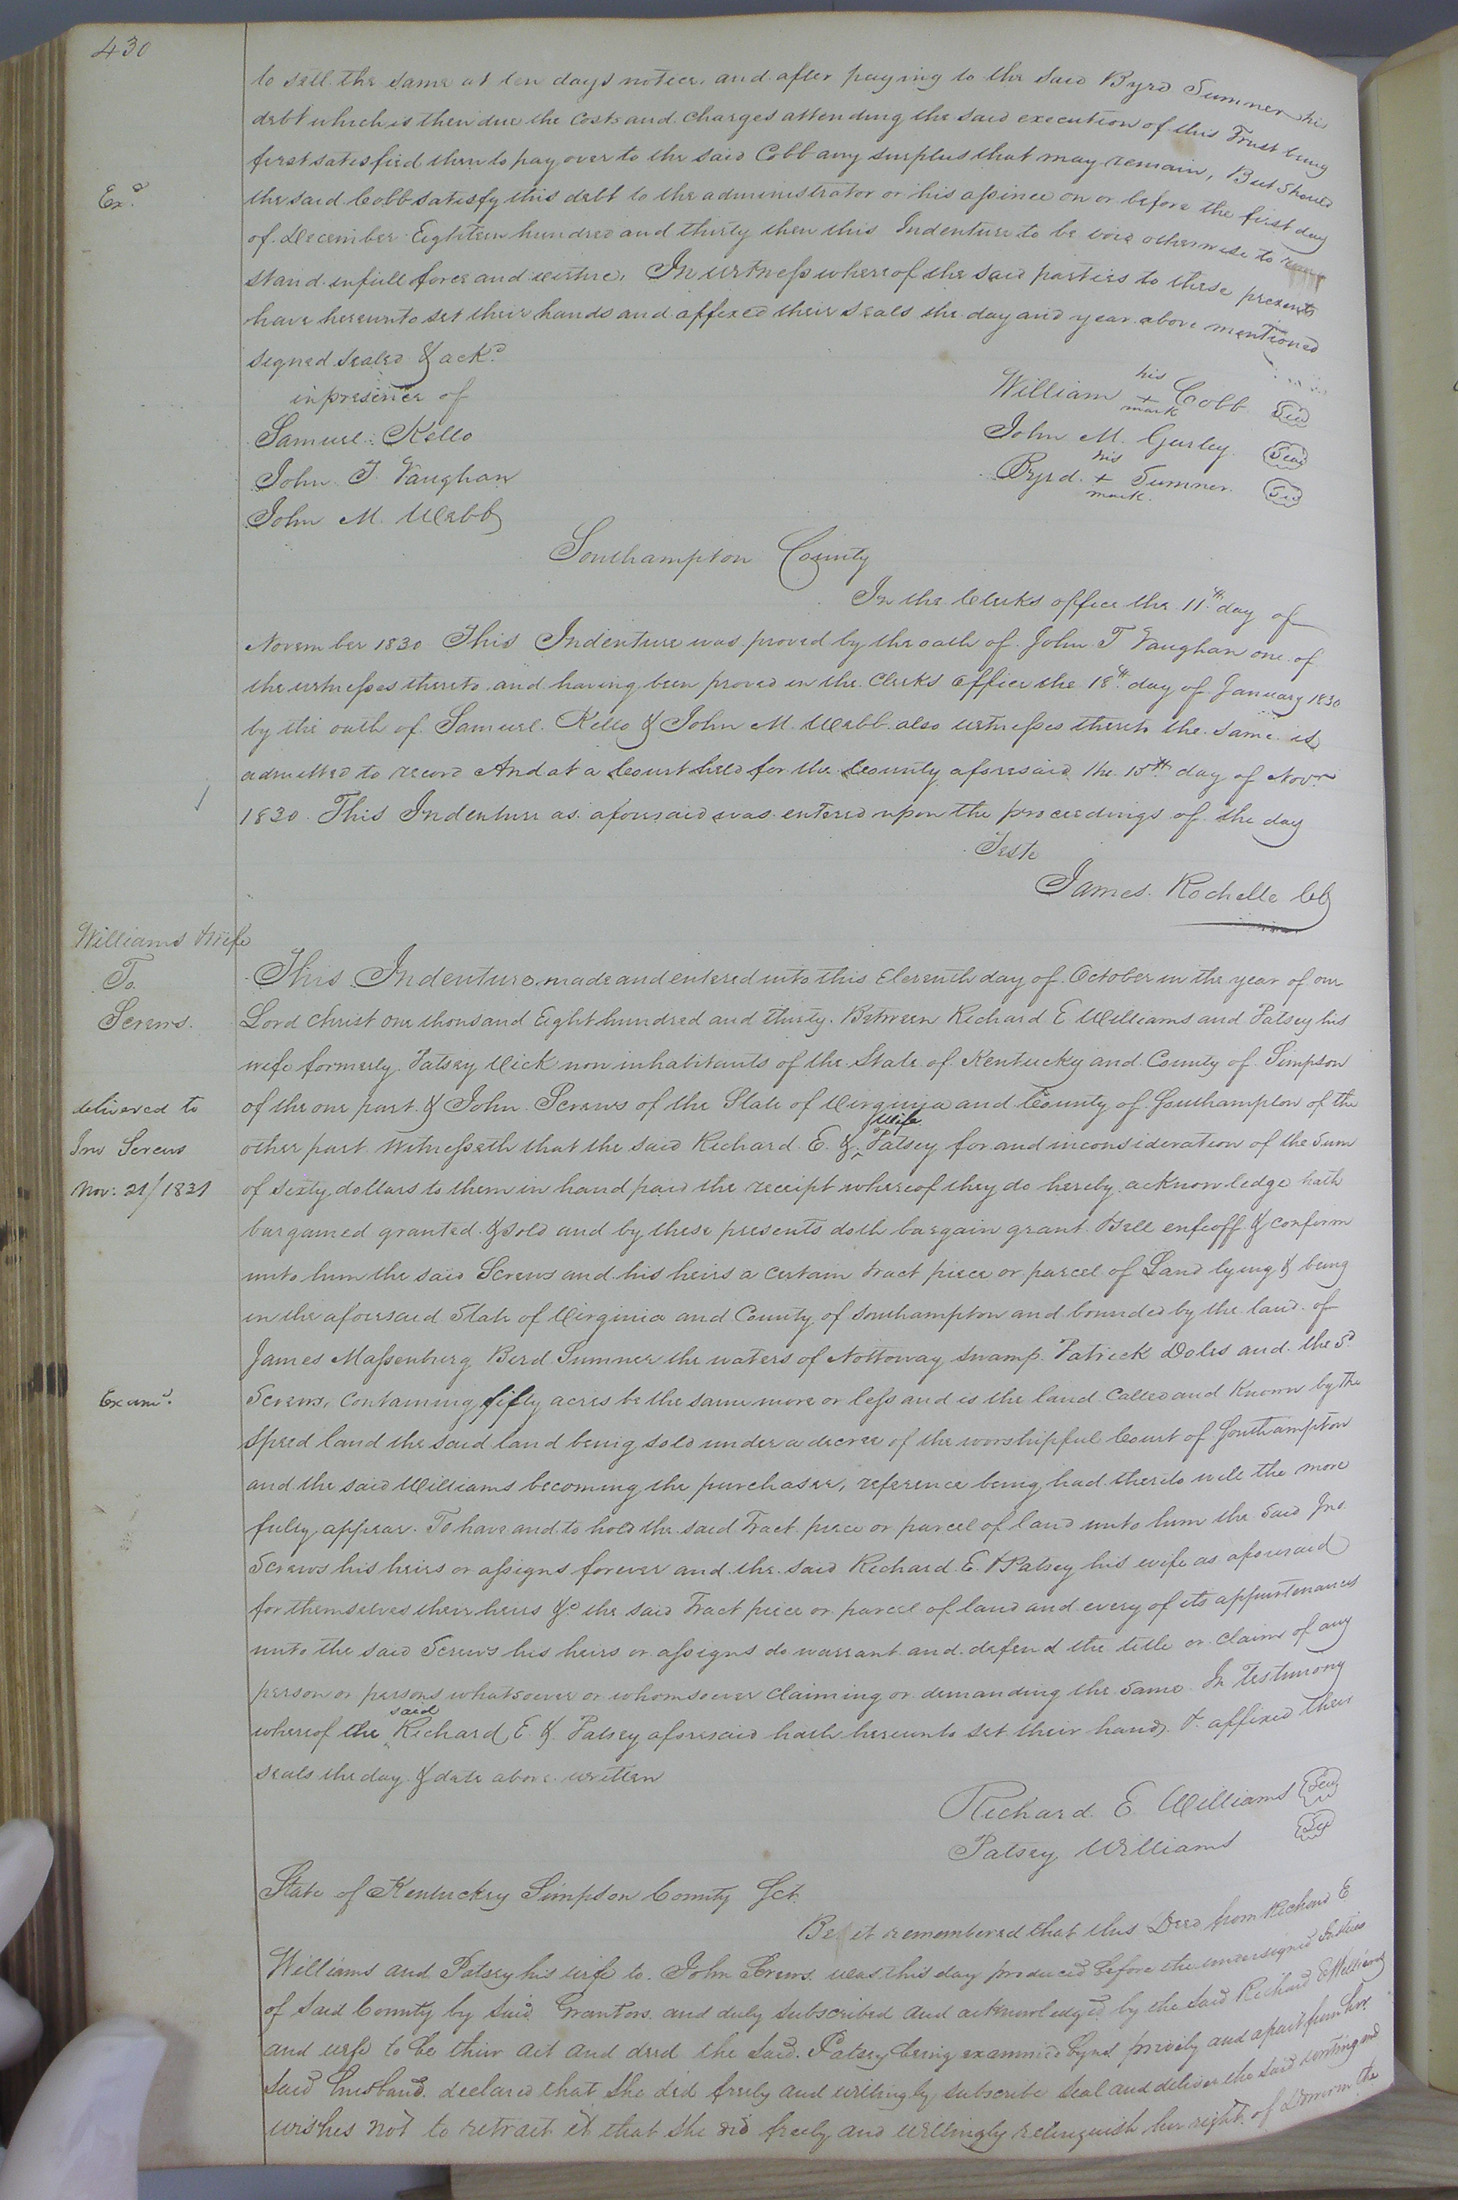 430
to sell the same at ten days notice. and after paying to the said Byrd Sumner his
debt which is then due the Costs and charges attending the said execution of this Trust being
first satisfied then to pay over to the said Cobb any surplus that may remain, But should
Exd.
the said Cobb satisfy this debt to the administrator or his assinee on or before the first day
of December Eighteen hundred and thirty then this Indenture to be void otherwise to
stand in full force and virtue. In witness whereof the said parties to these presents
have hereunto set their hands and affixed their seals the day and year above mentioned
signed sealed & ackd.
in presence of
Samuel Kello
John T Vaughan
John M. Webb
William his + mark Cobb Seal
John M. Gurley. Seal
Byrd his + mark Sumner Seal
Southampton County
In the Clerks office the 11th. day of
November 1830 This Indenture was proved by the oath of John T Vaughan one of
the witnesses thereto and having been proved in the Clerks office the 18th. day of January 1830
by the oath of Samuel Kello & John M. Webb also witnesses thereto the same is
admitted to record And at a Court held for the County aforesaid the 15th day of Novr
1830. This Indenture as aforesaid was entered upon the proceedings of the day
Teste
James Rochelle Cl
Williams & wife
To
Screws.
This Indenture made and entered into this Eleventh day of October in the year of our
Lord Christ One thousand Eight hundred and thirty. Between Richard E Williams and Patsey his
wife formerly Patsey Vick non inhabitants of the State of Kentucky and County of Simpson
delivered to
Jno Screws
Nov: 21/1831
of the one part & John Screws of the State of Virginia and County of Southampton of the
other part Witnesseth that the said Richard E. & Wife Patsey for and in consideration of the Sum
of sixty dollars to them in hand paid the receipt whereof they do hereby acknowledge hath
bargained granted & sold and by these presents doth bargain grant & sell enfeoff & confirm
unto him the said Screws and his heirs a certain tract piece or parcel of Land lying & being
in the aforesaid State of Virginia and County of Southampton and bounded by the land of
James Massenburg Berd Sumner the waters of Nottoway swamp Patrick Doles and the Sd
Examd.
Screws, Containing fifty acres be the same more or less and is the land Called and Known by the
Speed land the said land being sold under a decree of the worshipful Court of Southampton
and the said Williams becoming the purchaser, reference being had thereto will the more
fully appear. To have and to hold the said Tract piece or parcel of land unto him the Said Jno.
Screws his heirs or assigns forever and the said Richard E. & Patsey his wife as aforesaid
for themselves their heirs &c the said Tract piece or parcel of land and every of its appurtenances
unto the said Screws his heirs or assigns do warrant and defend the title or claim of any
person or persons whatsoever or whomsoever claiming or demanding the same In Testimony
whereof the said Richard E & Patsey aforesaid hath hereunto set their hands & affixed their
seals the day & date above written
Richard E Williams Seal
Patsey Williams Seal
State of Kentuckey Simpson County Sct.
Be it remembered that this Deed from Richard E
Williams and Patsey his wife to John Screws was this day produced before the undersigned Justices
of said County by said Grantors and duly subscribed and acknowledged by the said Richard E Williams
and wife to be their act and deed the said Patsey being examined by us privily and apart from her
said husband declared that she did freely and willingly subscribe seal and deliver the said writing and
wishes not to retract it that she did freely and willingly relinquish her right of Dower in the